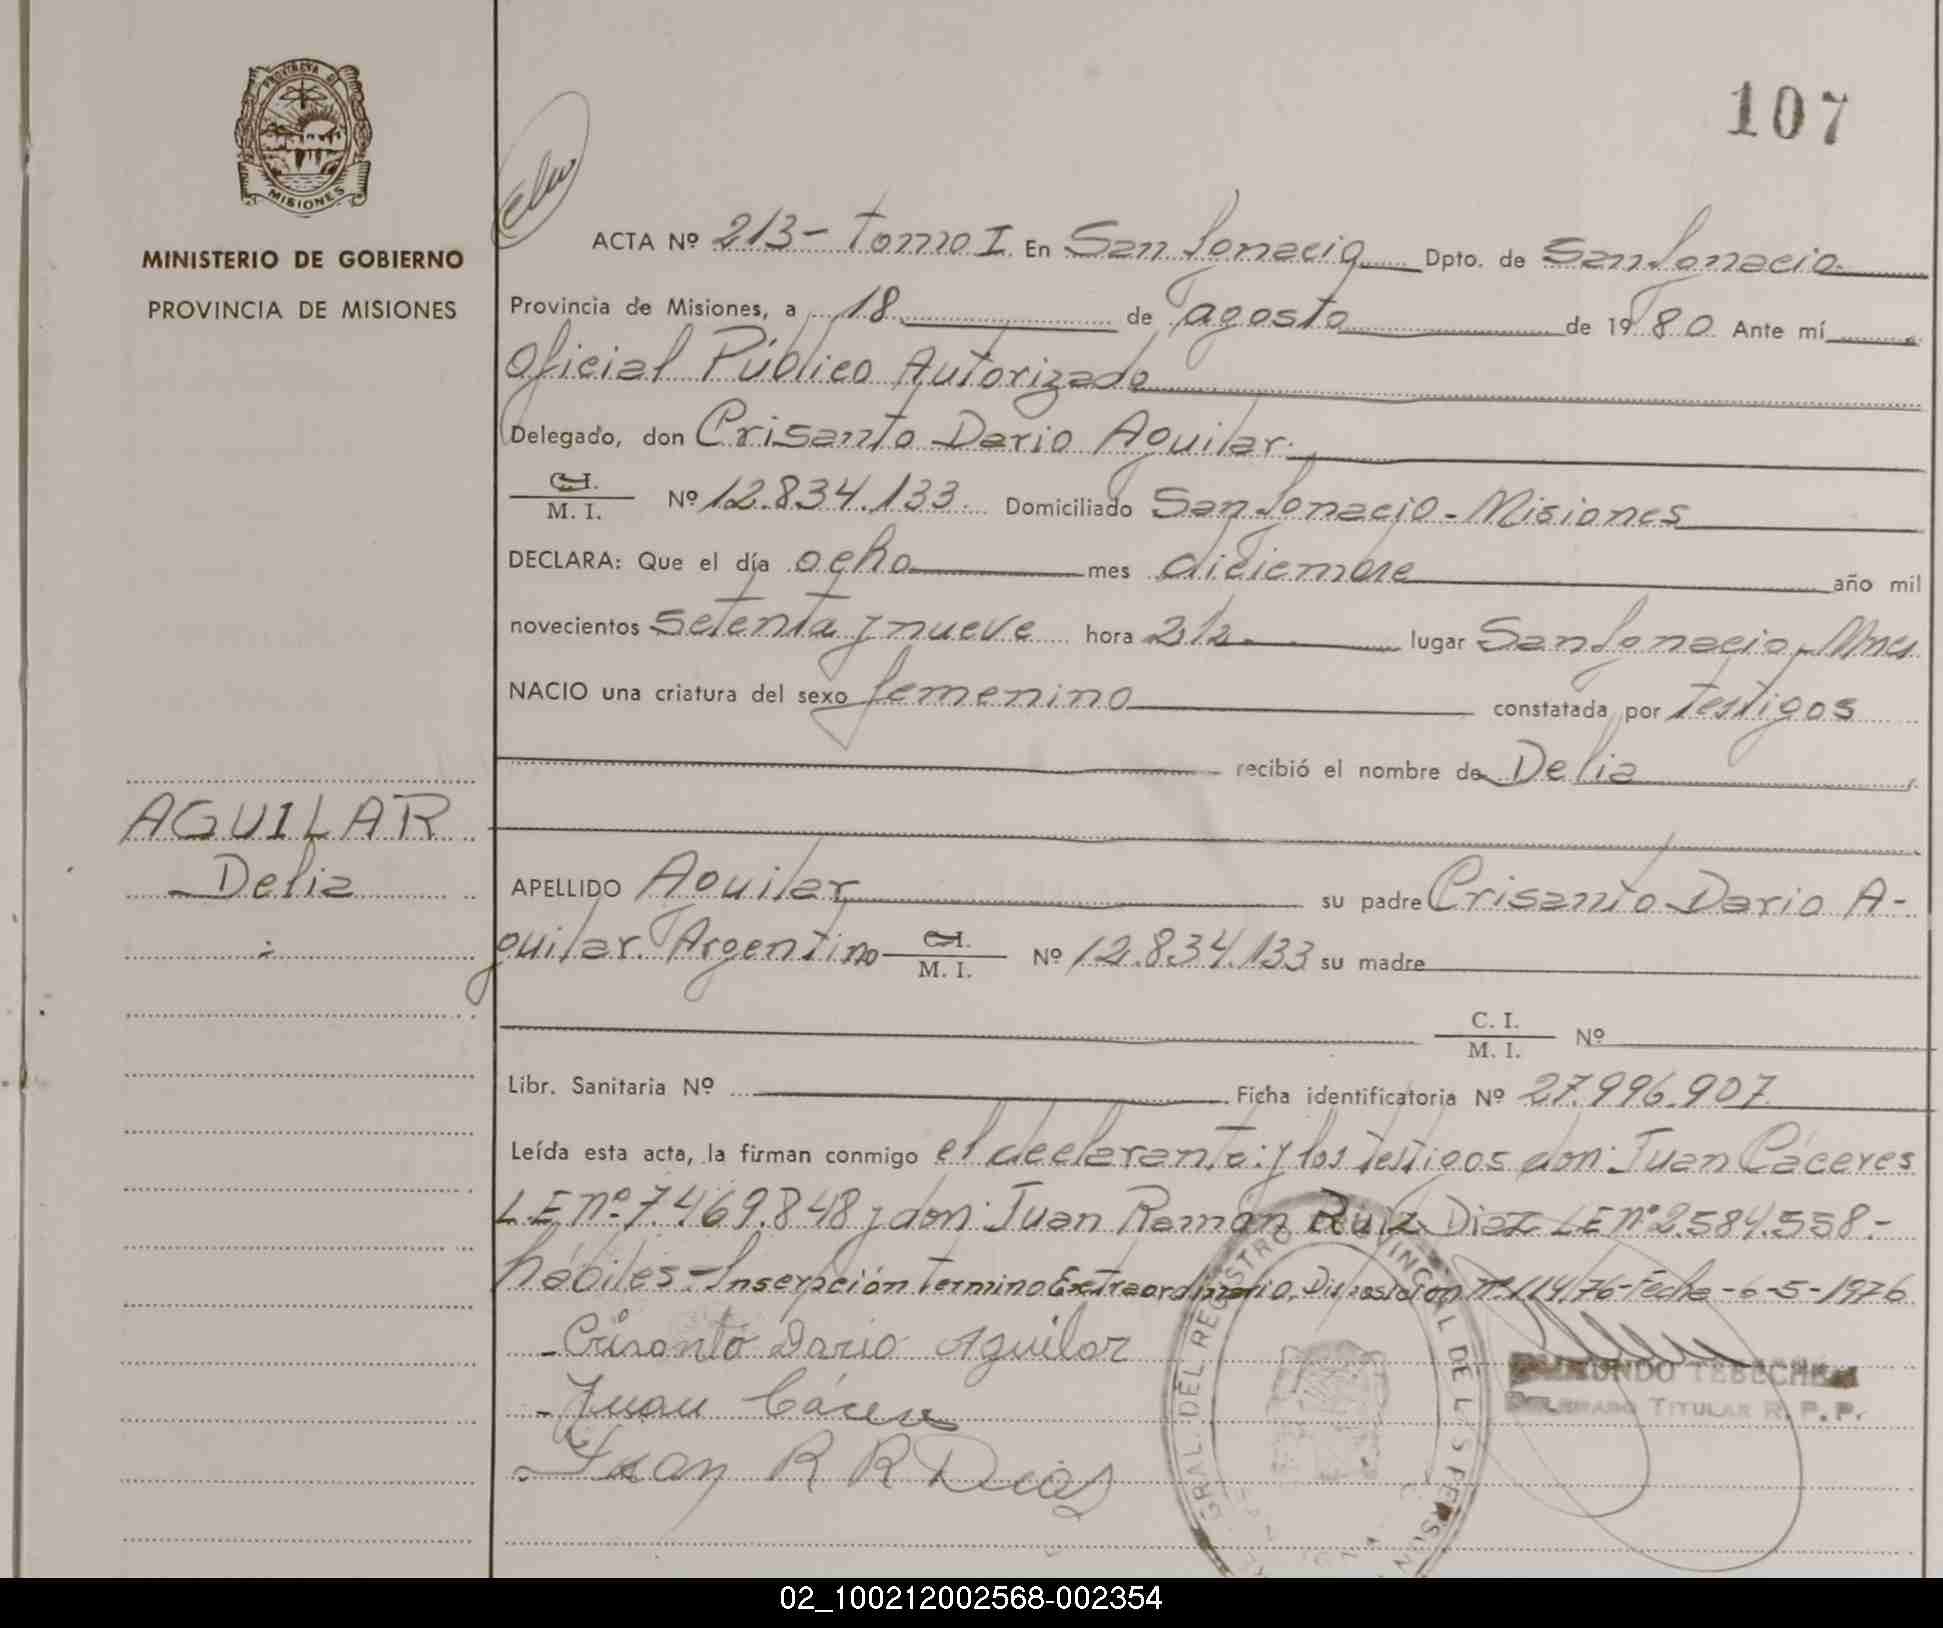 PROVINCIA DE
MISIONES
MINISTERIO DE GOBIERNO
PROVINCIA DE MISIONES
107
ACTA Nº 213 - Tomo I En San Ignacio Dpto. de San Ignacio
Provincia de Misiones, a 18 de agosto de 1980 Ante mí
Oficial Público Autorizado
Delegado, don Crisanto Dario Aguilar.
C.I.
M. I. Nº 12.834.133. Domiciliado San Ignacio - Misiones
DECLARA: Que el día ocho mes diciembre año mil
novecientos setenta y nueve hora 21½ lugar San Ignacio - Mnes
NACIO una criatura del sexo femenino constatada por testigos
recibió el nombre de Delia
AGUILAR
Delia
APELLIDO Aguilar su padre Crisanto Dario A-
guilar. Argentino C.I.
M. I. Nº 12.834.133 su madre
C. I.
M. I. Nº
Libr. Sanitaria Nº Ficha identificatoria Nº 27.996.907
Leída esta acta, la firman conmigo el declarante: y los testigos don: Juan Cáceres
L.E nº 7.469.848 y don: Juan Ramón Ruiz Diaz LE nº 2.584.558.-
hábiles - Inserpción Termino Extraordinario. Disposición nº 114/76 - Fecha - 6-5-1976
- Crisanto Dario Aguilar
- Juan Cáceres
- Juan R R Dias
RAIMUNDO TEBECHERI
DELEGADO TITULAR R. P. P.
GRAL. DEL REGISTRO PROVINCIAL DE LAS PERSONAS
02_100212002568-002354